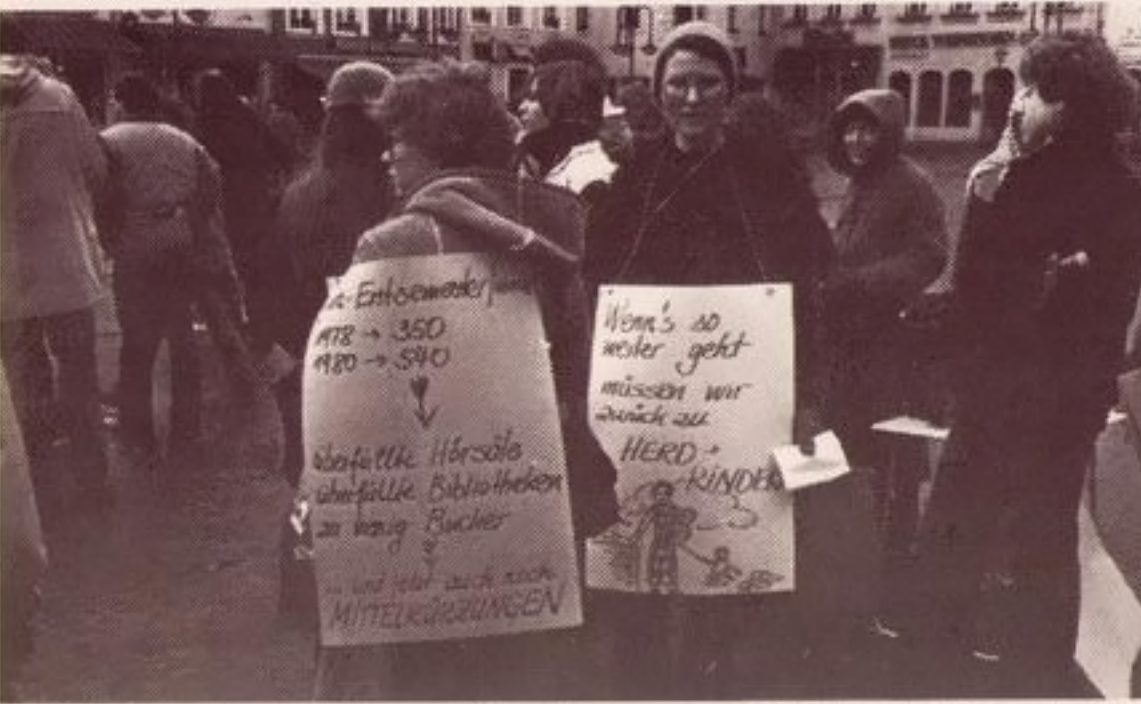 Erstsemester
1978 → 350
1980 → 540
überfüllte Hörsäle
überfüllte Bibliotheken
zu wenig Bücher
... und jetzt auch noch
MITTELKÜRZUNGEN
Wenn's so
weiter geht
müssen wir
zurück zu
HERD +
KINDER